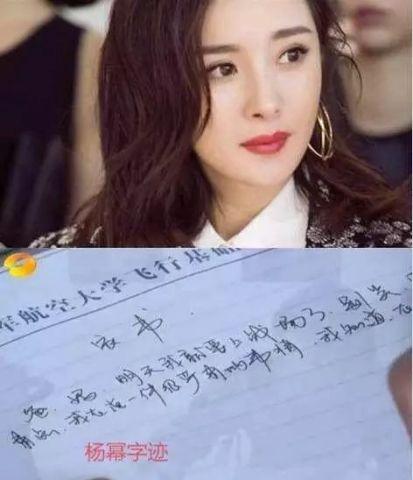 军航空大学飞行基础
家书
爸、妈,明天我就要上战场了,别
我在 一件很 的事情,我知道,
杨幂字迹